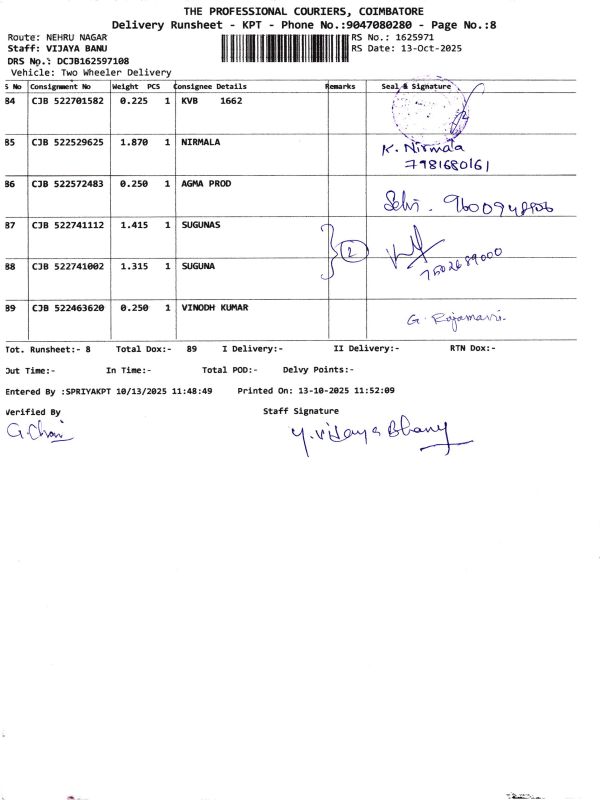 THE PROFESSIONAL COURIERS, COIMBATORE
Delivery Runsheet - KPT - Phone No.:9047080280 - Page No.:8
Route: NEHRU NAGAR RS No.: 1625971
Staff: VIJAYA BANU RS Date: 13-Oct-2025
DRS No.: DCJB162597108
Vehicle: Two Wheeler Delivery
S No Consignment No Weight PCS Consignee Details Remarks Seal & Signature
84 CJB 522701582 0.225 1 KVB 1662
85 CJB 522529625 1.870 1 NIRMALA K. Nirmala
7981680161
86 CJB 522572483 0.250 1 AGMA PROD
Selvi. 9600948906
87 CJB 522741112 1.415 1 SUGUNAS
2
7502689000
88 CJB 522741002 1.315 1 SUGUNA
89 CJB 522463620 0.250 1 VINODH KUMAR
G. Rajamani.
Tot. Runsheet:- 8 Total Dox:- 89 I Delivery:- II Delivery:- RTN Dox:-
Out Time:- In Time:- Total POD:- Delvy Points:-
Entered By :SPRIYAKPT 10/13/2025 11:48:49 Printed On: 13-10-2025 11:52:09
Verified By Staff Signature
Y. Vijaya Bhanu